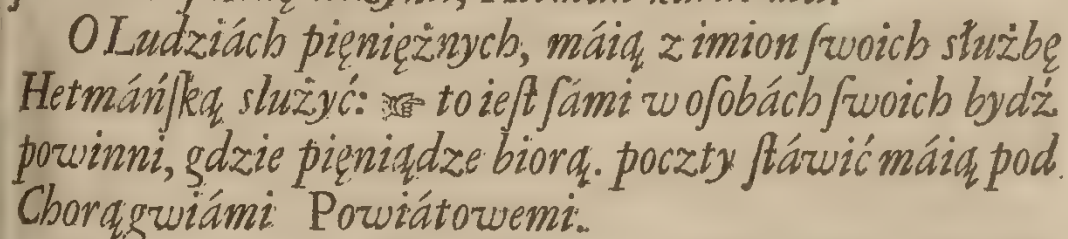 O Ludziách pięniężnych, máią z imion ſwoich służbę
Hetmáńſką służyć: ☞ to ieſt ſámi w oſobách ſwoich bydź
powinni, gdzie pięniądze biorą. poczty ſtáwić máią pod
Chorągwiámi Powiátowemi.